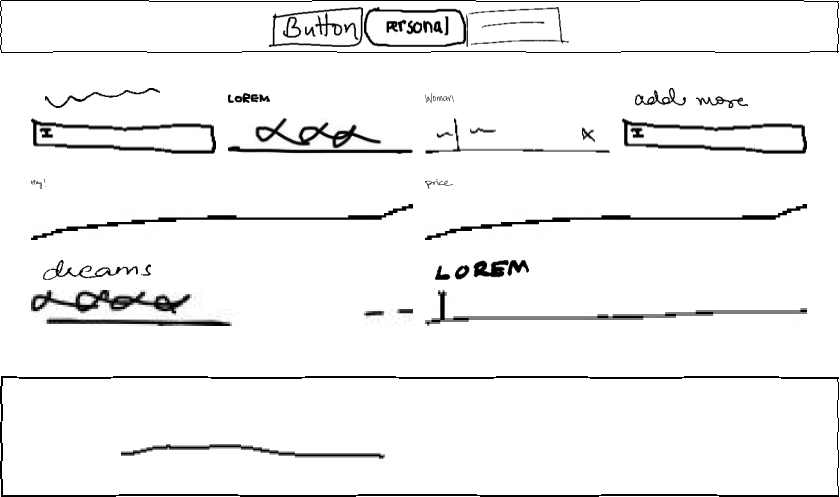 Button Personal
LOREM Woman add more
I I
Hey! price
dreams LOREM